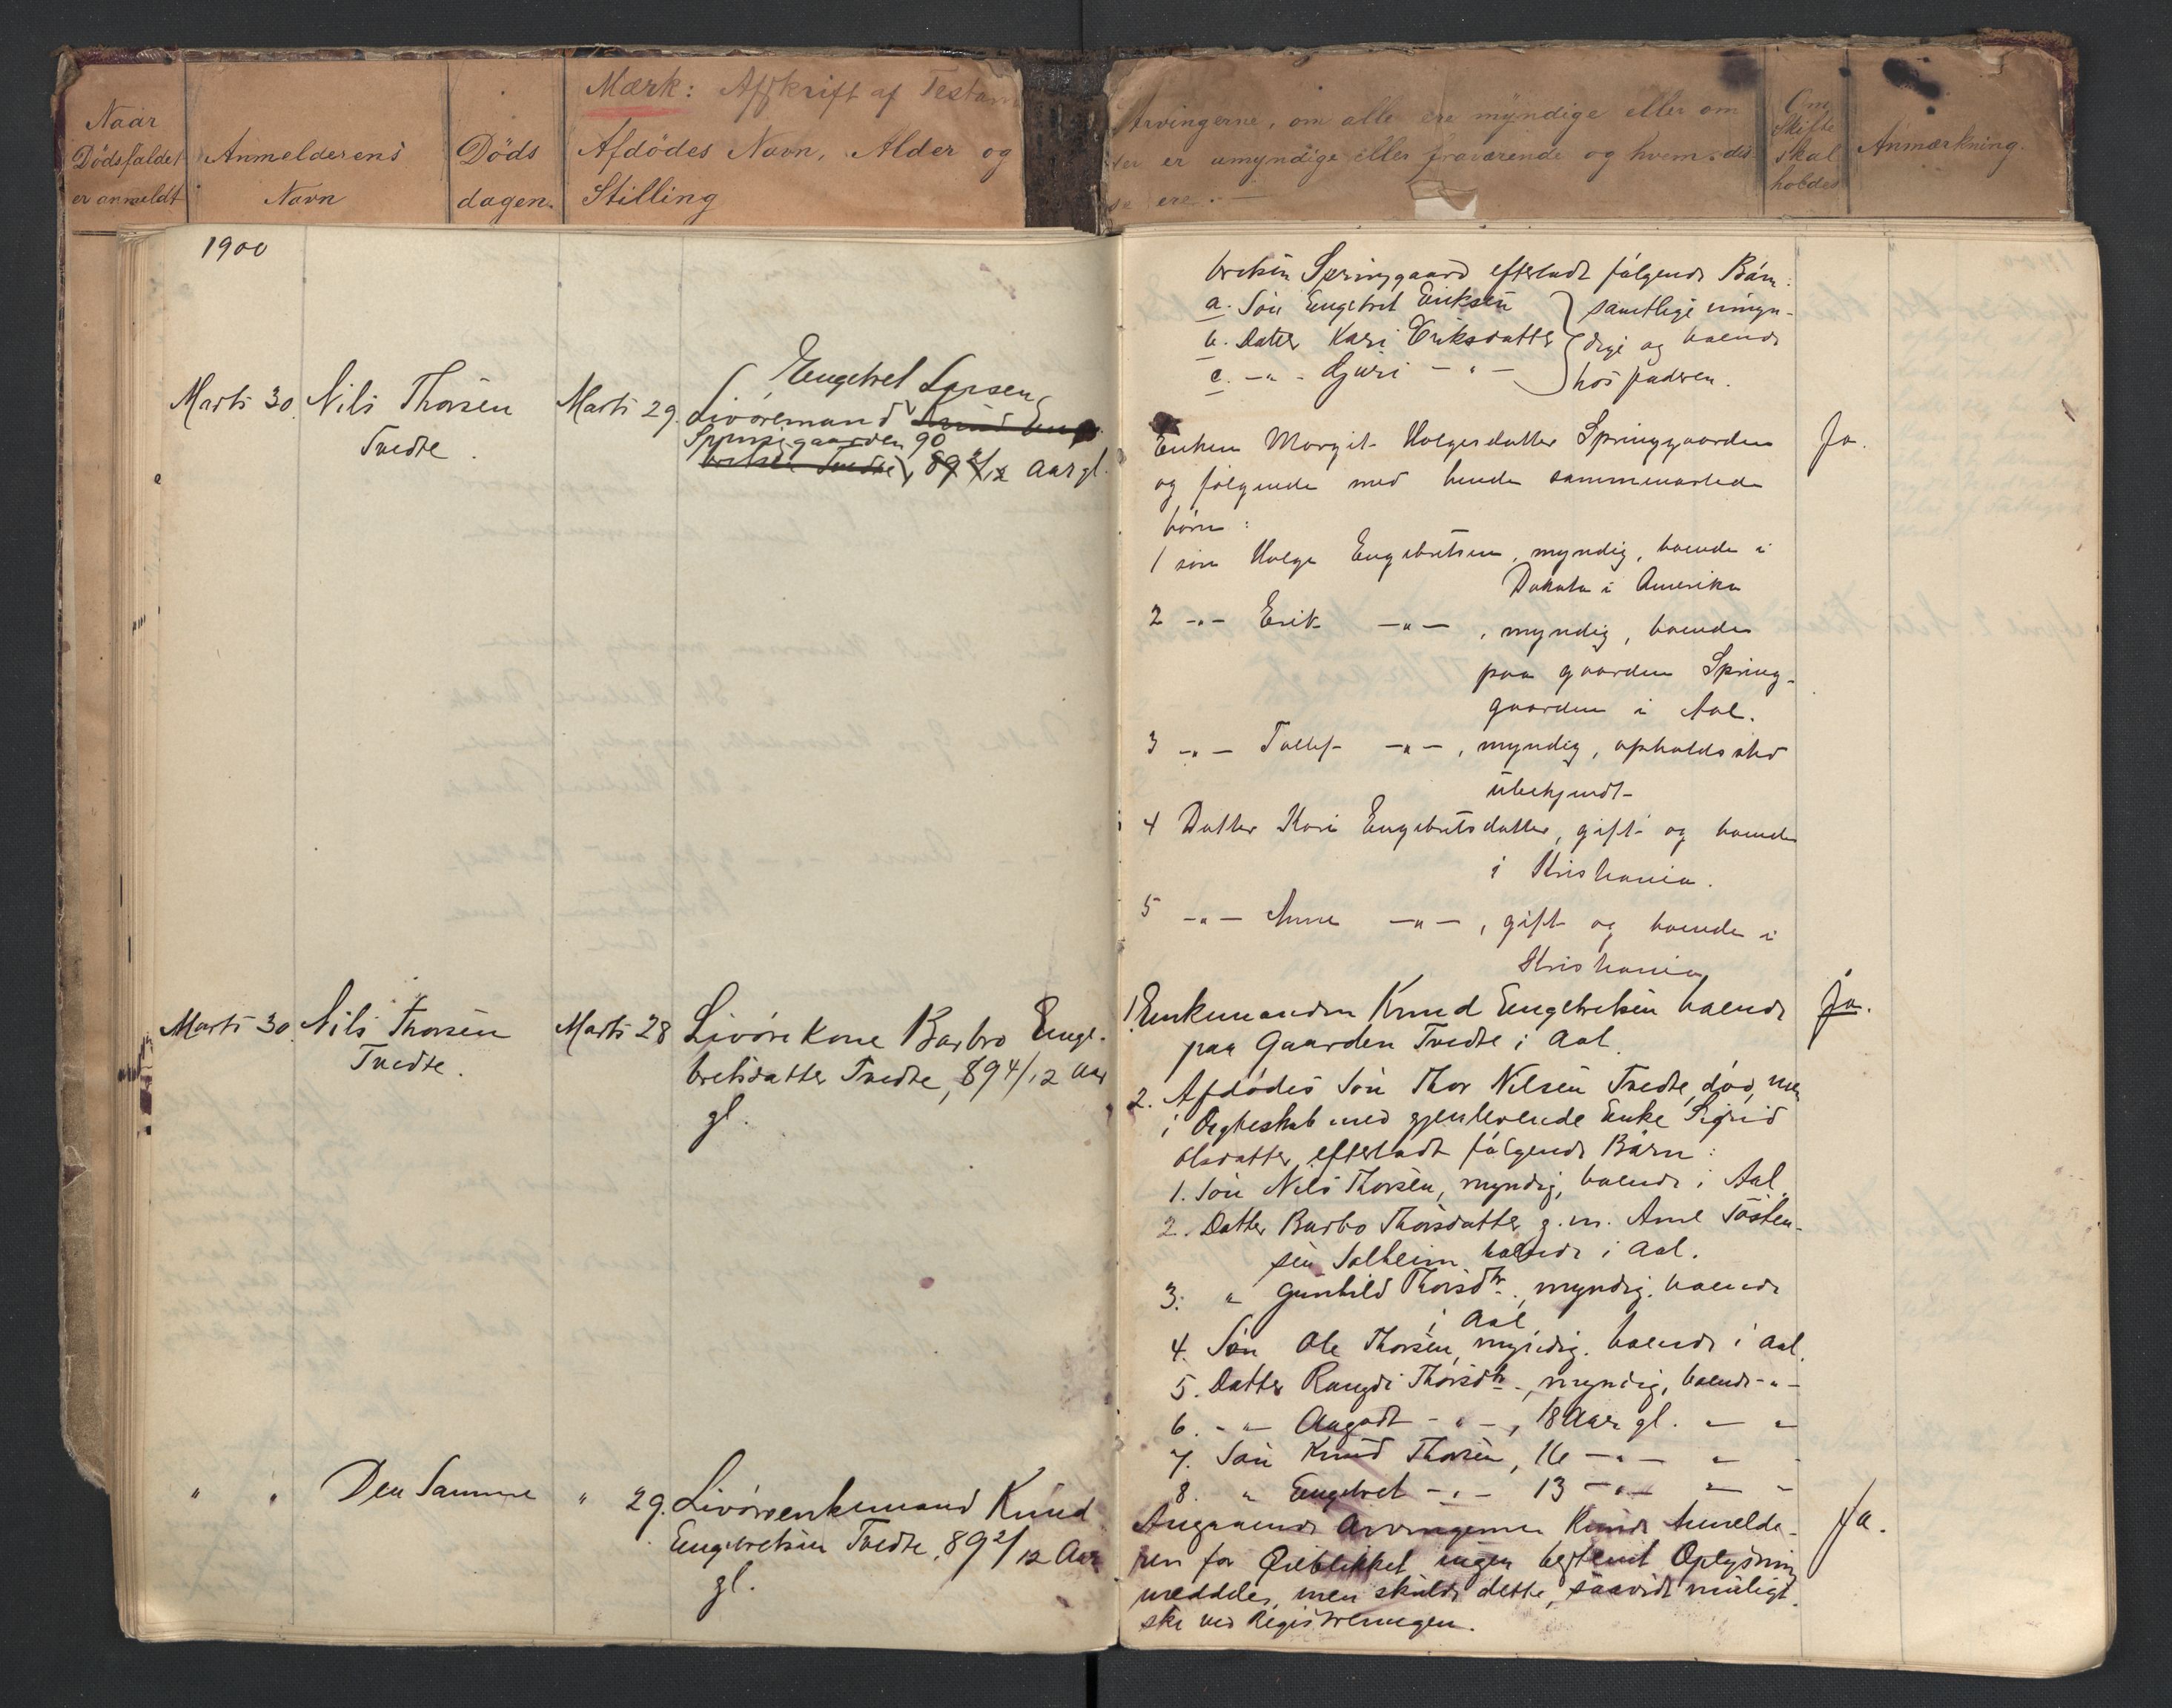 Naar
Dödsfaldet
er anmeldt
Anmelderens
Navn
Döds
dagen.
Mærk: Afskrift af
Afdödes Navn, Alder og
Stilling
Arvingerne, om alle ere myndige eller om
der er umyndige eller fraværende og hvem dis-
se ere.
Om
Skifte
skal
holdes
Anmærkning.
1900
Marts 30.
Nils Thorsen
Tvedte.
Marts 29.
Engebret Larsen
Livöremand
Springgaarden 90
bretsen Tvedte, 89 2/12 Aar gl.
Marts 30.
Nils Thorsen
Tvedte.
Marts 28
Livörekone Barbro Enge-
bretsdatter Tvedte, 89 4/12 Aar
gl.
" "
Den Samme
" 29.
Livöreenkemand Knud
Engebretsen Tvedte, 89 2/12 Aar
gl.
bretsen Springgaard efterladt fölgende Börn:
a. Sön Engebret Eriksen
b. Datter Kari Eriksdatter
c. -"- Gjuri -"-
samtlige umyn-
dige og boende
hos faderen.
Enken Margit Holgersdatter Springgaarden
og fölgende med hende sammenavlede
börn:
Ja.
1 sön Holge Engebretsen, myndig, boende i
Dakota i Amerika
2 -"- Erik -"-, myndig, boende
paa gaarden Spring-
gaarden i Aal.
3 -"- Tollef -"-, myndig, opholdssted
ubekjendt
4 Datter Kari Engebretsdatter, gift og boende
i Kristiania.
5 -"- Anne -"-, gift og boende i
Kristiania
1. Enkemanden Knud Engebretsen boende
paa Gaarden Tvedte i Aal.
Ja.
2. Afdödes Sön Thor Nilsen Tvedte, död, men
i Ægteskab med gjenlevende Enke Sigrid
Olsdatter efterladt fölgende Börn:
1. Sön Nils Thorsen, myndig, boende i Aal.
2. Datter Barbo Thorsdatter, g. m. Arne Tösten-
sen Solheim boende i Aal.
3. " Gunhild Thorsdtr., myndig. boende
i Aal
4. Sön Ole Thorsen, myndig. boende i Aal.
5. Datter Rangdi Thorsdtr., myndig, boende -"-
6. -"- Aagodt -"-, 18 Aar gl. " "
7. Sön Knud Thorsen, 16 -"- " "
8. " Engebret -"- 13 -"- " "
Angaaende Arvingerne kunde Anmelde-
ren for Øieblikket ingen bestemt Oplysning
meddeles, men skulde dette, saavidt muligt
ske ved Registreringen.
Ja.